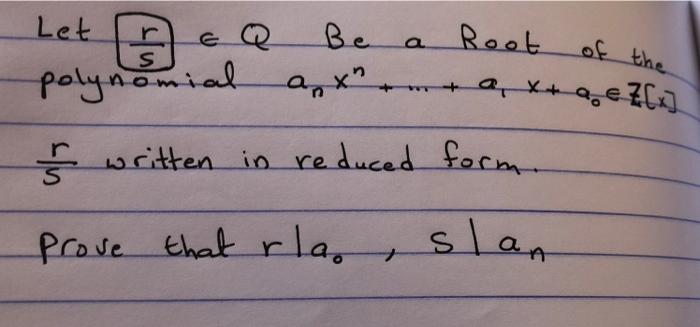 Let r/s ∈ Q Be a Root of the
polynomial aₙxⁿ + ... + a₁x + a₀ ∈ ℤ[x]
r/s written in reduced form.
Prove that r|a₀, s|aₙ